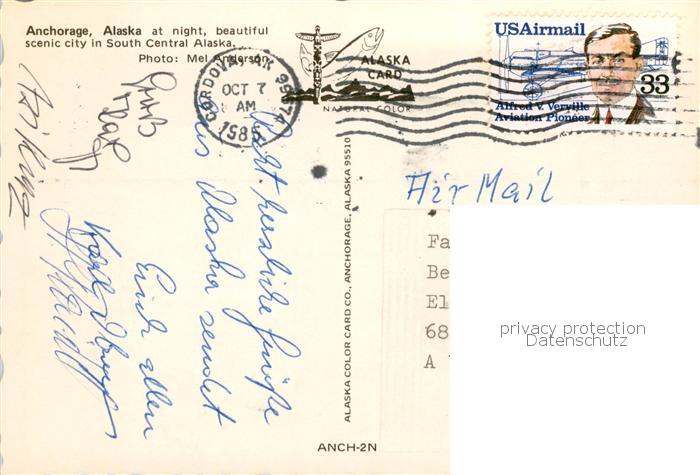 Anchorage, Alaska at night, beautiful
scenic city in South Central Alaska.
Photo: Mel Anderson
ALASKA
CARD
NATURAL COLOR
CORDOVA, AK 99574
OCT 7
AM
1985
USAirmail
33
Alfred V. Verville
Aviation Pioneer
Air Mail
herzliche Grüße
aus Alaska sendet
Euch allen
Karl
ALASKA COLOR CARD CO., ANCHORAGE, ALASKA 99510
Fa
Be
El
68
A
privacy protection
Datenschutz
ANCH-2N